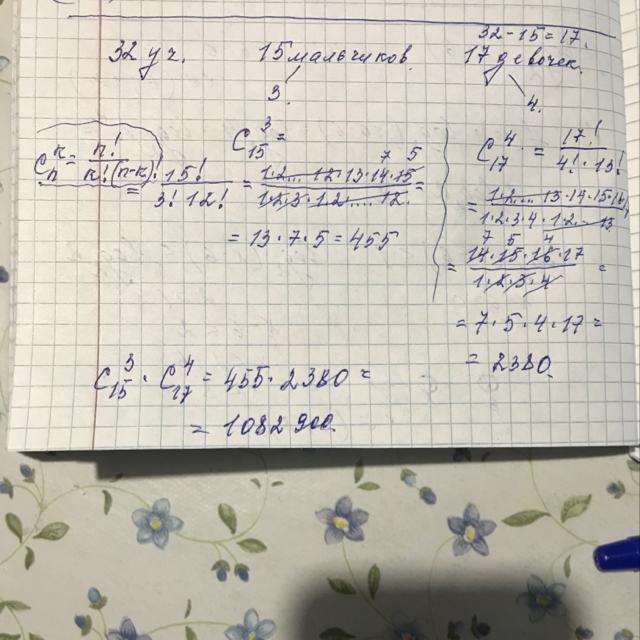 32 - 15 = 17.
32 уч. 15 мальчиков 17 девочек.
3. 4.
C₁₅³ =
Cₙᵏ = n! / k!(n-k)!
= 15! / 3! 12! = 1·2... 12·13·14·15 / 1·2·3·1·2.... 12. =
7 5
= 13 · 7 · 5 = 455
C₁₇⁴ = 17! / 4! · 13!
= 1·2... 13·14·15·16 / 1·2·3·4·1·2...13
7 5 4
= 14·15·16·17 / 1·2·3·4 =
= 7 · 5 · 4 · 17 =
= 2380.
C₁₅³ · C₁₇⁴ = 455 · 2380 =
= 1082 900.